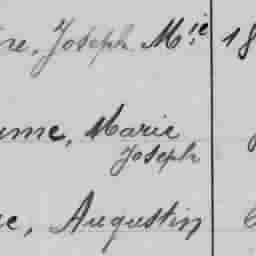 re, Joseph M.ie 18
ume, Marie
Joseph
e, Augustin